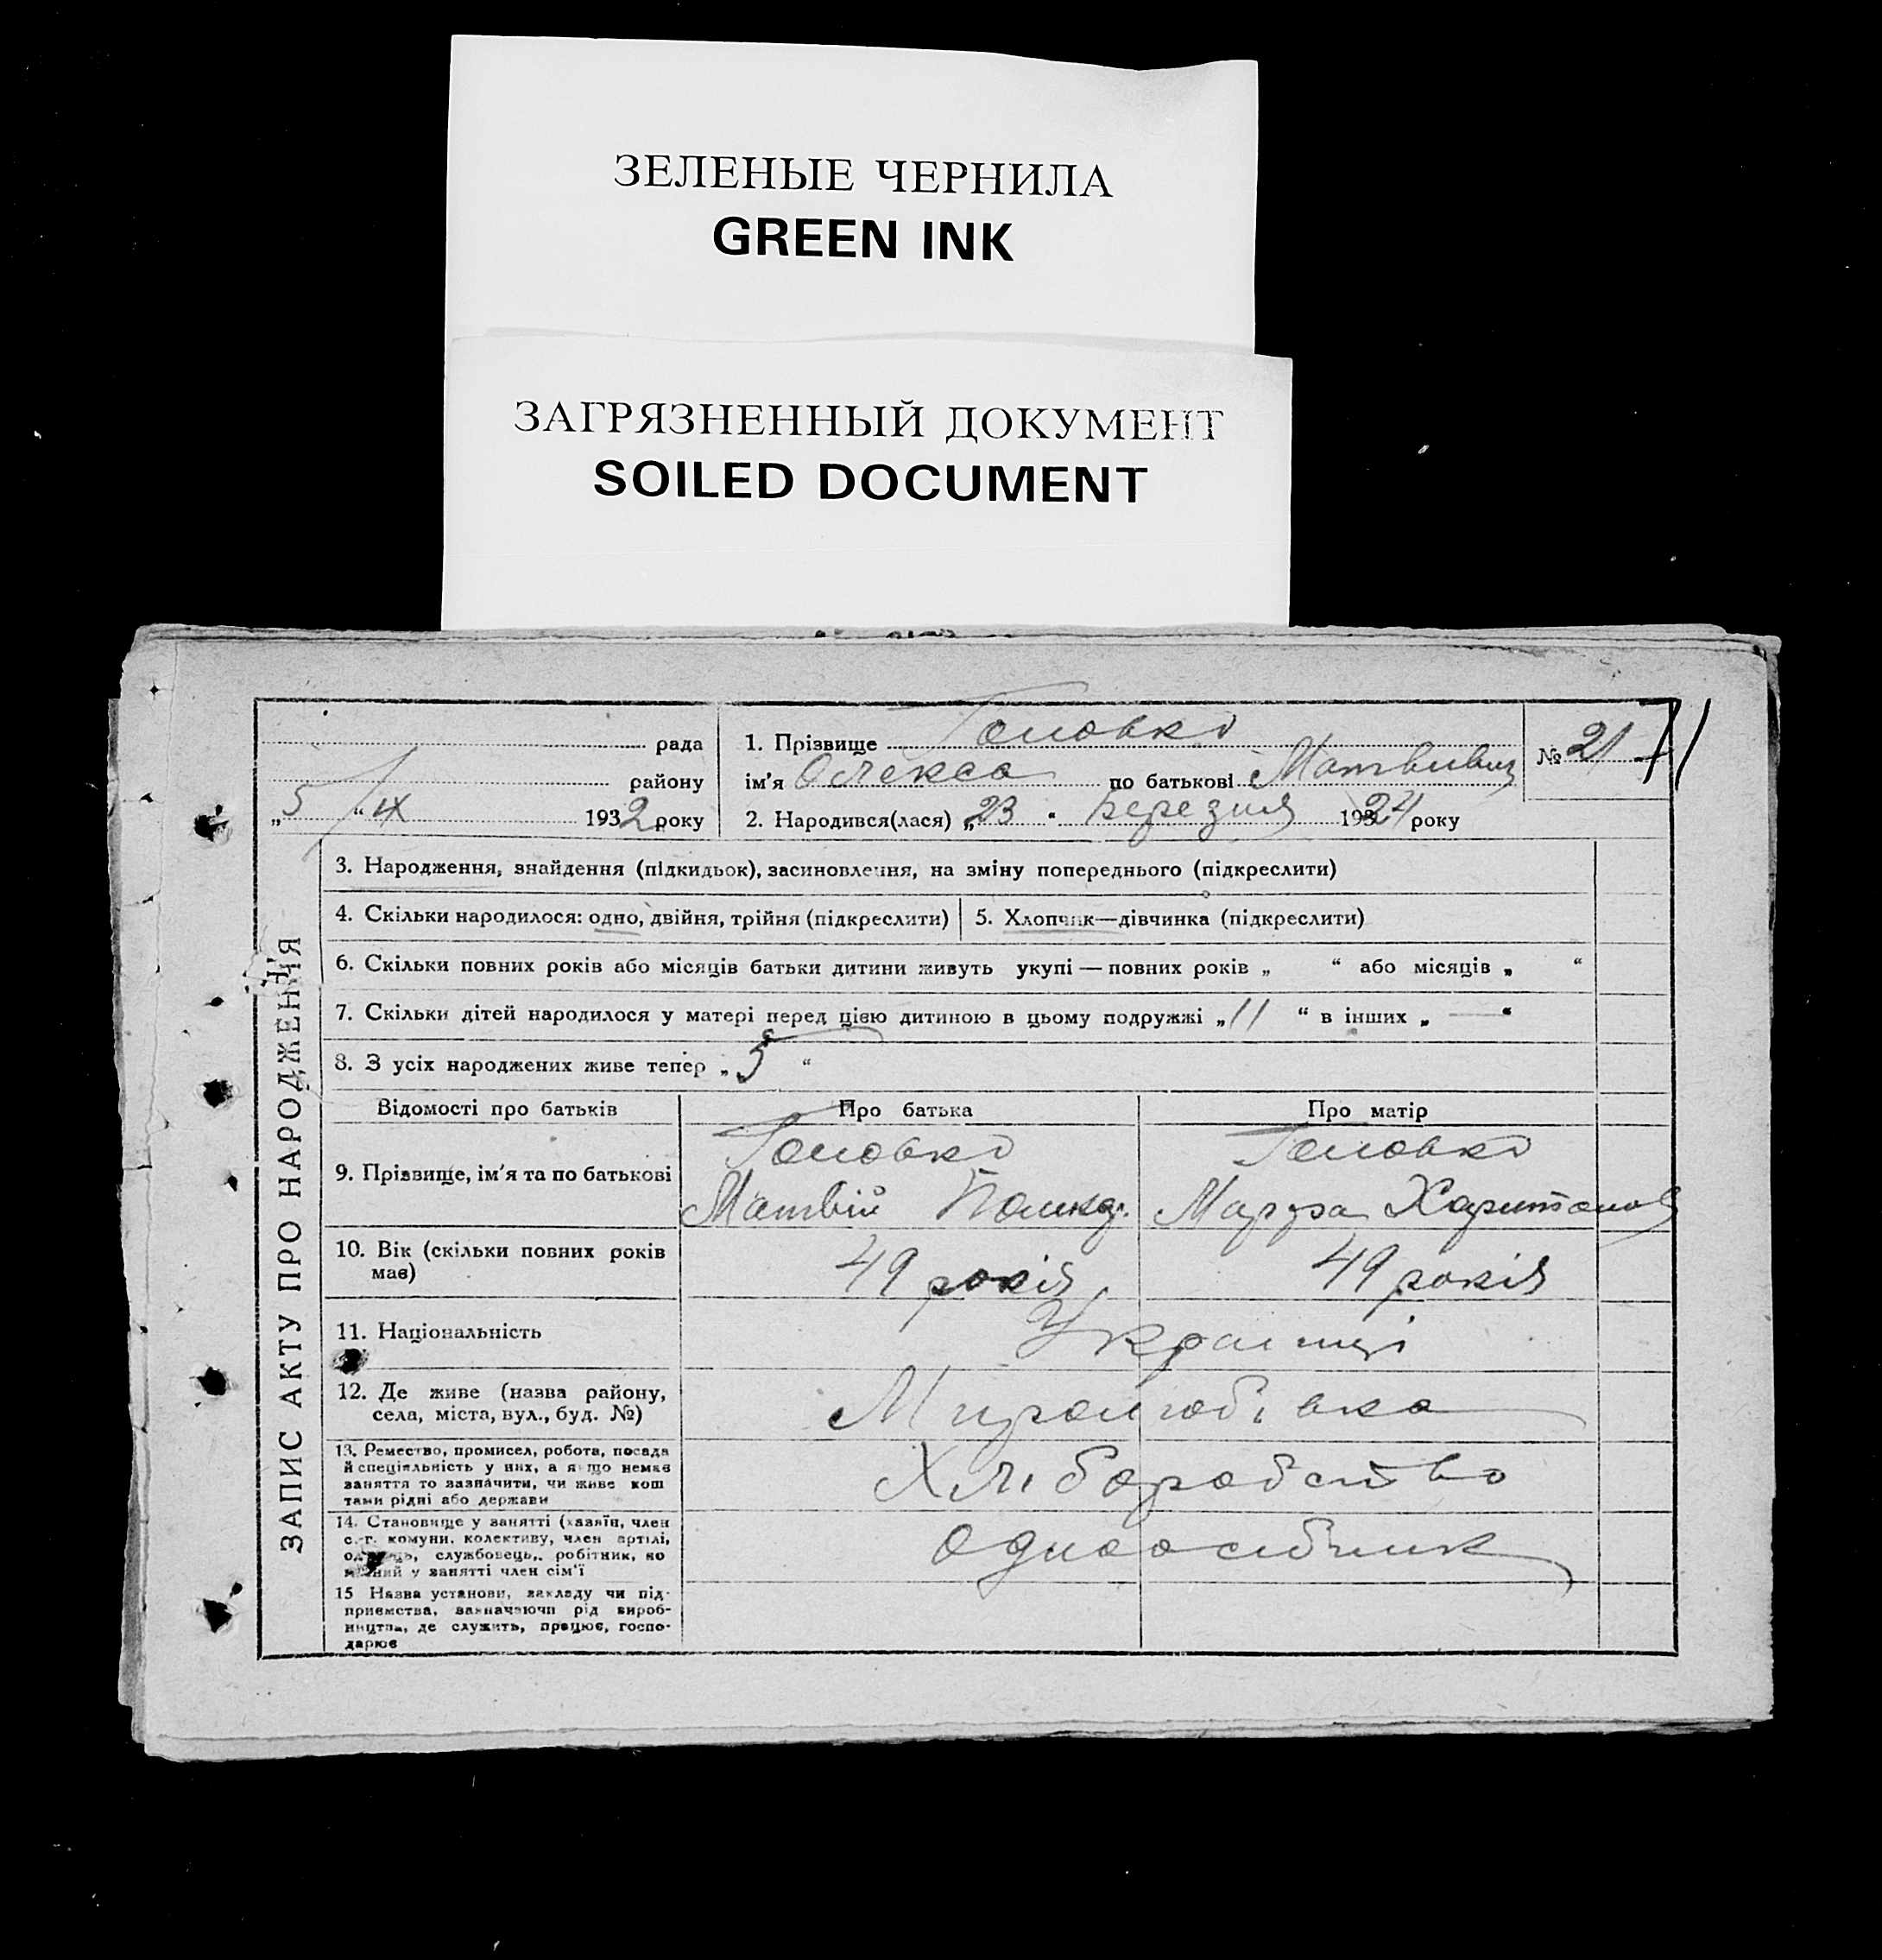 ЗЕЛЕНЫЕ ЧЕРНИЛА
GREEN INK
ЗАГРЯЗНЕННЫЙ ДОКУМЕНТ
SOILED DOCUMENT
ЗАПИС АКТУ ПРО НАРОДЖЕННЯ
рада
району
„5“ IX 1932 року
1. Прізвище Головко
ім'я Олекса по батькові Матвієвич
2. Народився(лася) „23 " березня 1924 року
№ 21
71
3. Народження, знайдення (підкидьок), засиновлення, на зміну попереднього (підкреслити)
4. Скільки народилося: одно, двійня, трійня (підкреслити)
5. Хлопчик—дівчинка (підкреслити)
6. Скільки повних років або місяців батьки дитини живуть укупі — повних років „ “ або місяців „ “
7. Скільки дітей народилося у матері перед цією дитиною в цьому подружжі „11 “ в інших „ — “
8. З усіх народжених живе тепер „5 “
Відомості про батьків
Про батька
Про матір
9. Прізвище, ім'я та по батькові
Головко
Матвій
Головко
Марфа Харитонов
10. Вік (скільки повних років
має)
49 років
49 років
11. Національність
Українці
12. Де живе (назва району,
села, міста, вул., буд. №)
Миролюбівка
13. Ремество, промисел, робота, посада
й спеціяльність у них, а якщо немає
заняття то зазначити, чи живе кош
тами рідні або держави
Хліборобство
14. Становище у занятті (хазяїн, член
с.-г. комуни, колективу, член артілі,
службовець, робітник, по
у занятті член сім'ї
одноосібник
15 Назва установи, закладу чи під-
приємства, зазначаючи рід вироб-
ництва, де служить, працює, госпо-
дарює